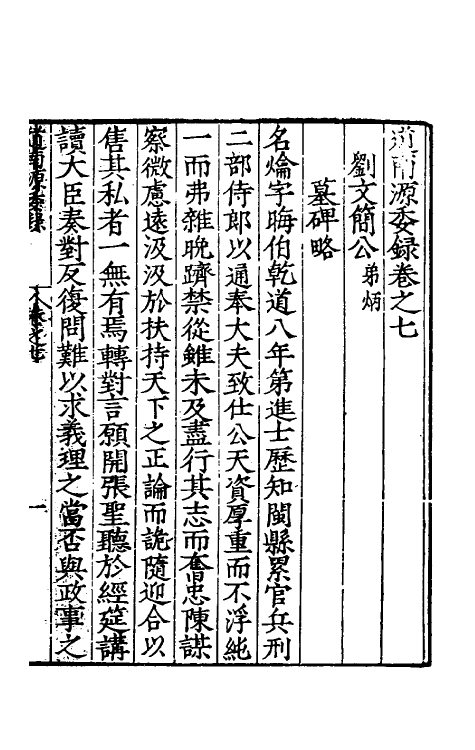 道南源委録卷之七
劉文簡公弟炳
墓碑略
名爚字晦伯乾道八年第進士歷知閩縣累官兵刑
二部侍郎以通奉大夫致仕公天資厚重而不浮純
一而弗雜晚躋禁從雖未及盡行其志而奮忠陳謀
察微慮遠汲汲於扶持天下之正論而詭隨迎合以
售其私者一無有焉轉對言願開張聖聽於經筵講
讀大臣奏對反復問難以求義理之當否與政事之
道南源委録
卷之七
一